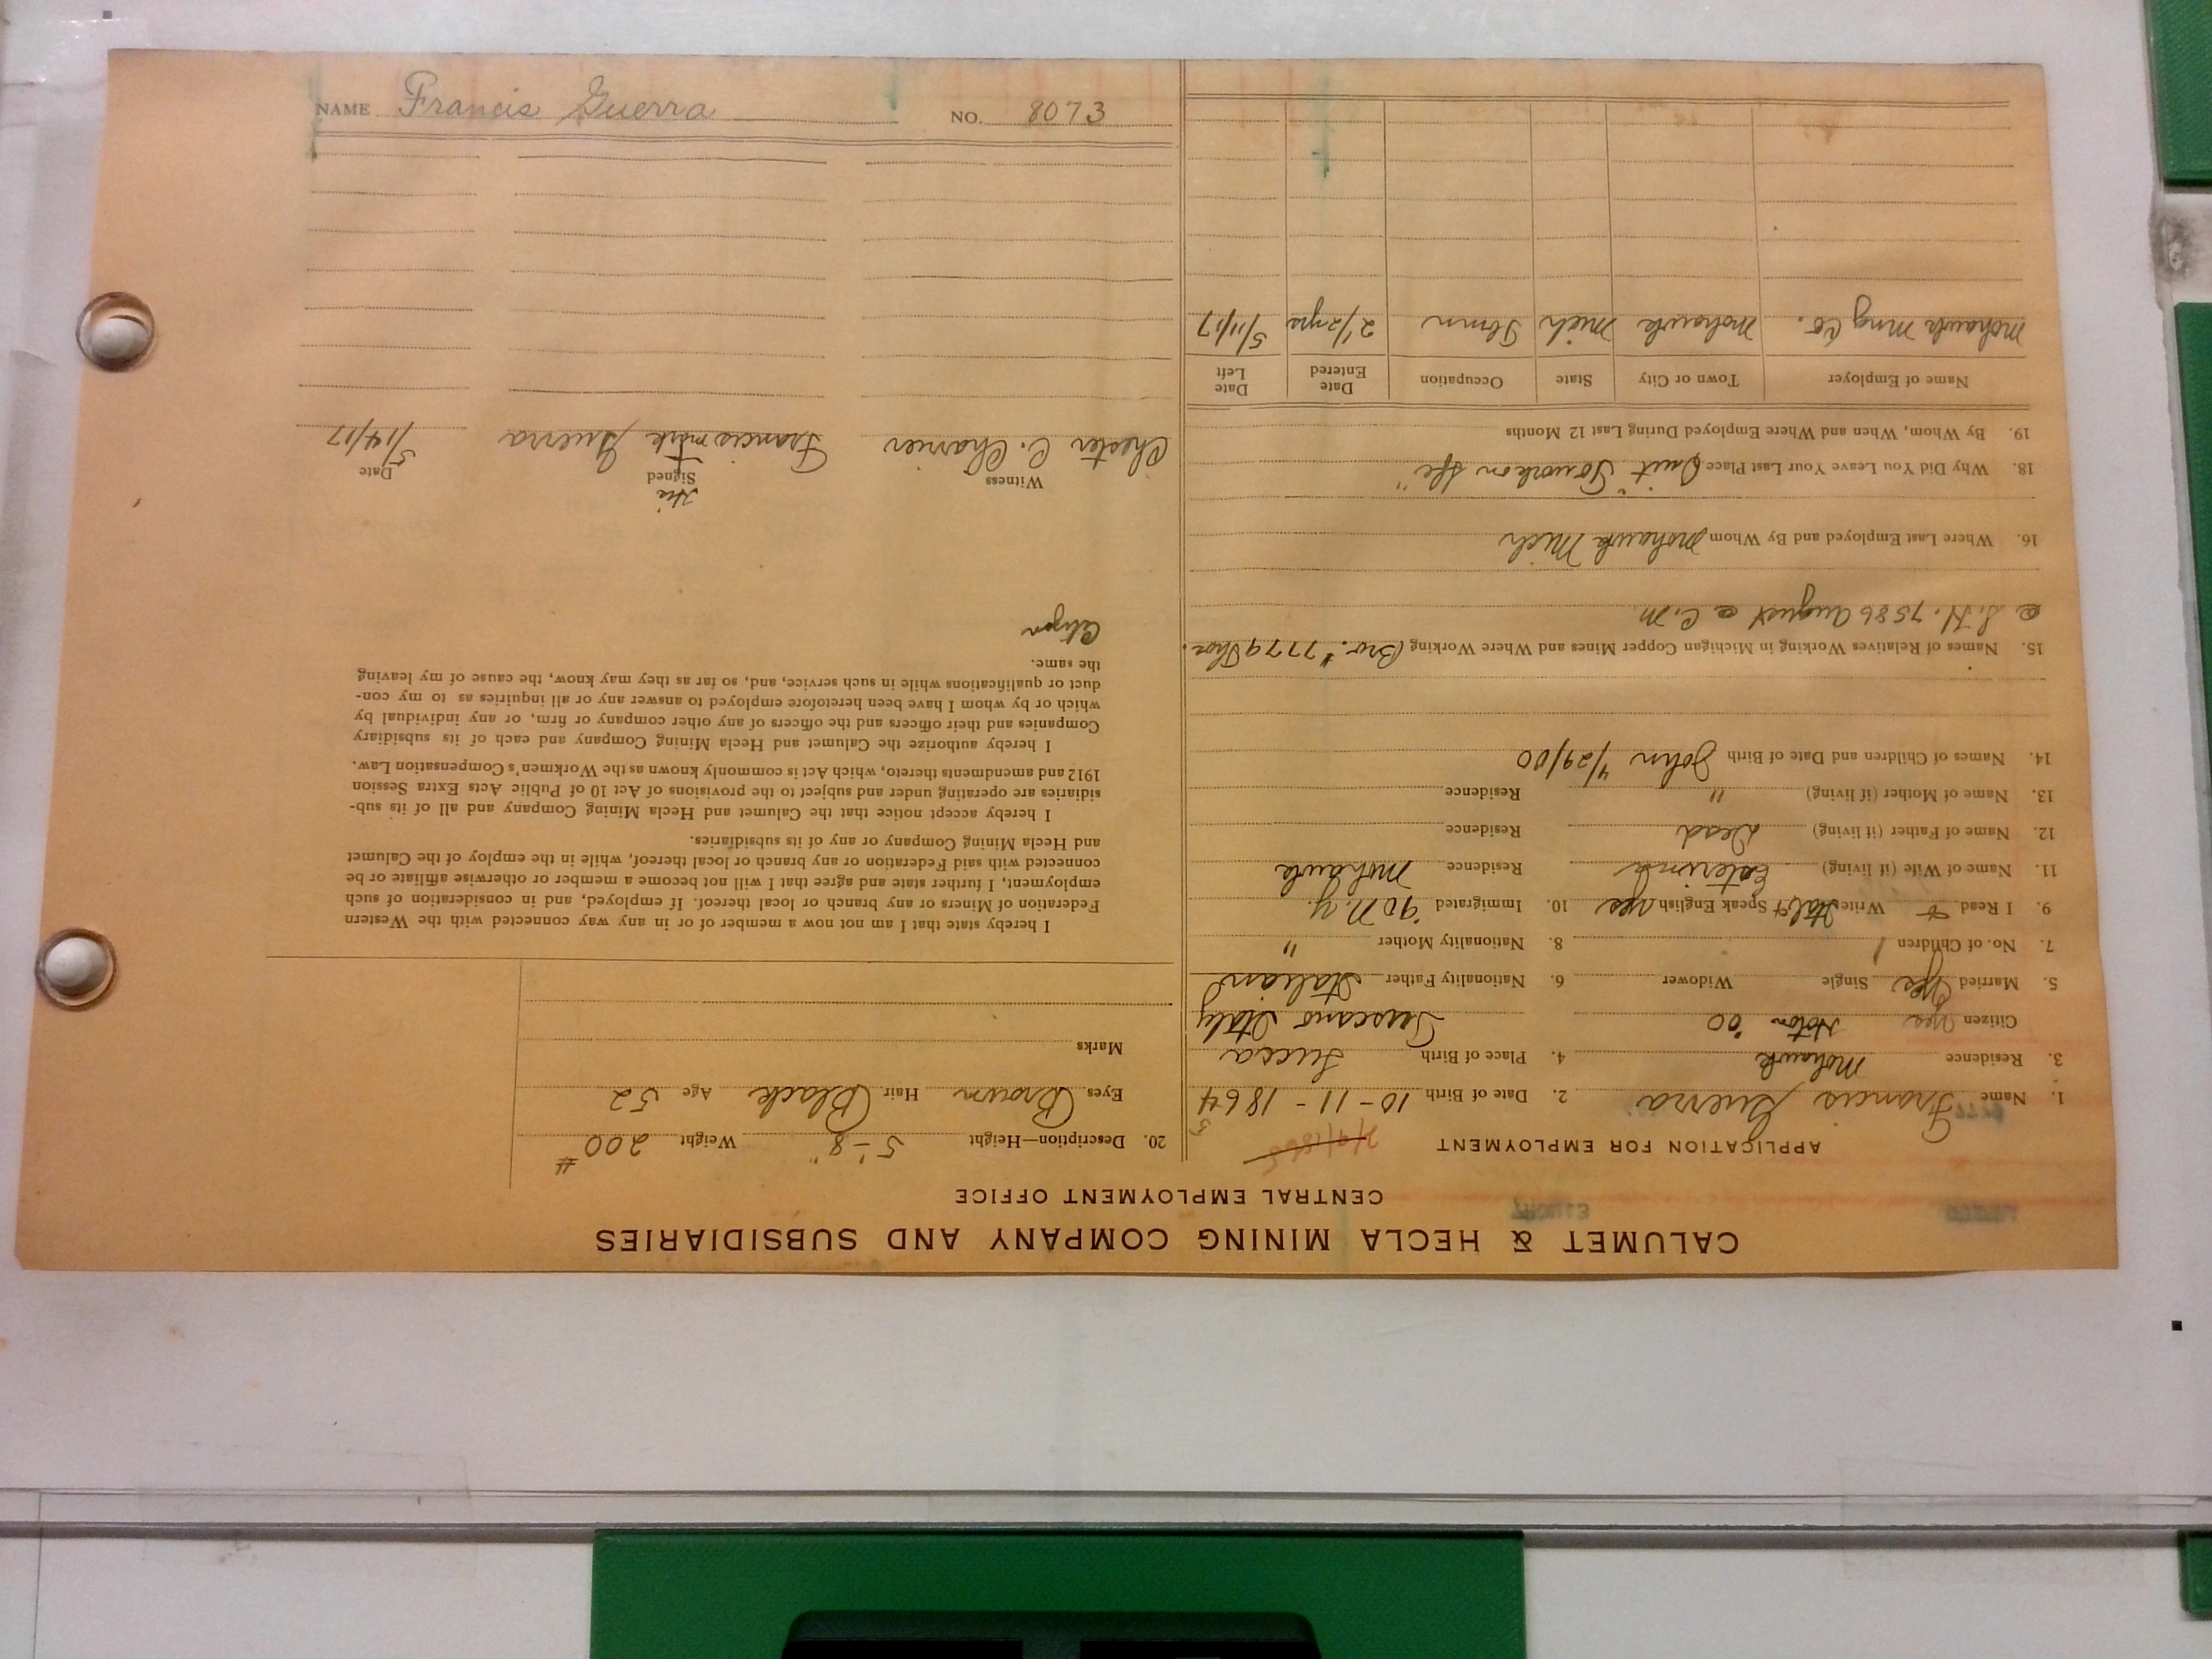 NAME Francis Guerra NO. 8073
CALUMET & HECLA MINING COMPANY AND SUBSIDIARIES
CENTRAL EMPLOYMENT OFFICE
APPLICATION FOR EMPLOYMENT
1. Name Francis Guerra 2. Date of Birth 10-11-1864
3. Residence Mohawk 4. Place of Birth Lucca
Citizen Yes Hoton '00 Tuscano Italy
5. Married Yes Single Widower 6. Nationality Father Italian
7. No. of Children 1 8. Nationality Mother "
9. I Read Write Speak English yes 10. Immigrated '90 N.Y.
11. Name of Wife (if living) Caterina Residence Mohawk
12. Name of Father (if living) Dead Residence
13. Name of Mother (if living) " Residence
14. Names of Children and Date of Birth John 4/29/00
15. Names of Relatives Working in Michigan Copper Mines and Where Working Bro. #7779 Thos.
S.H. 7586 August C.M.
16. Where Last Employed and By Whom Mohawk Mich
18. Why Did You Leave Your Last Place Quit "To work on
19. By Whom, When and Where Employed During Last 12 Months
Name of Employer Town or City State Occupation Date Entered Date Left
Mohawk Mng Co. Mohawk Mich 2 1/2 yrs 5/11/17
20. Description—Height 5'-8" Weight 200#
Eyes Brown Hair Black Age 52
Marks
I hereby state that I am not now a member of or in any way connected with the Western
Federation of Miners or any branch or local thereof. If employed, and in consideration of such
employment, I further state and agree that I will not become a member or otherwise affiliate or be
connected with said Federation or any branch or local thereof, while in the employ of the Calumet
and Hecla Mining Company or any of its subsidiaries.
I hereby accept notice that the Calumet and Hecla Mining Company and all of its sub-
sidiaries are operating under and subject to the provisions of Act 10 of Public Acts Extra Session
1912 and amendments thereto, which Act is commonly known as the Workmen's Compensation Law.
I hereby authorize the Calumet and Hecla Mining Company and each of its subsidiary
Companies and their officers and the officers of any other company or firm, or any individual by
which or by whom I have been heretofore employed to answer any or all inquiries as to my con-
duct or qualifications while in such service, and, so far as they may know, the cause of my leaving
the same.
Citizen
Witness His Signed Date
Chester C. Charrier Francis mark Guerra 5/14/17